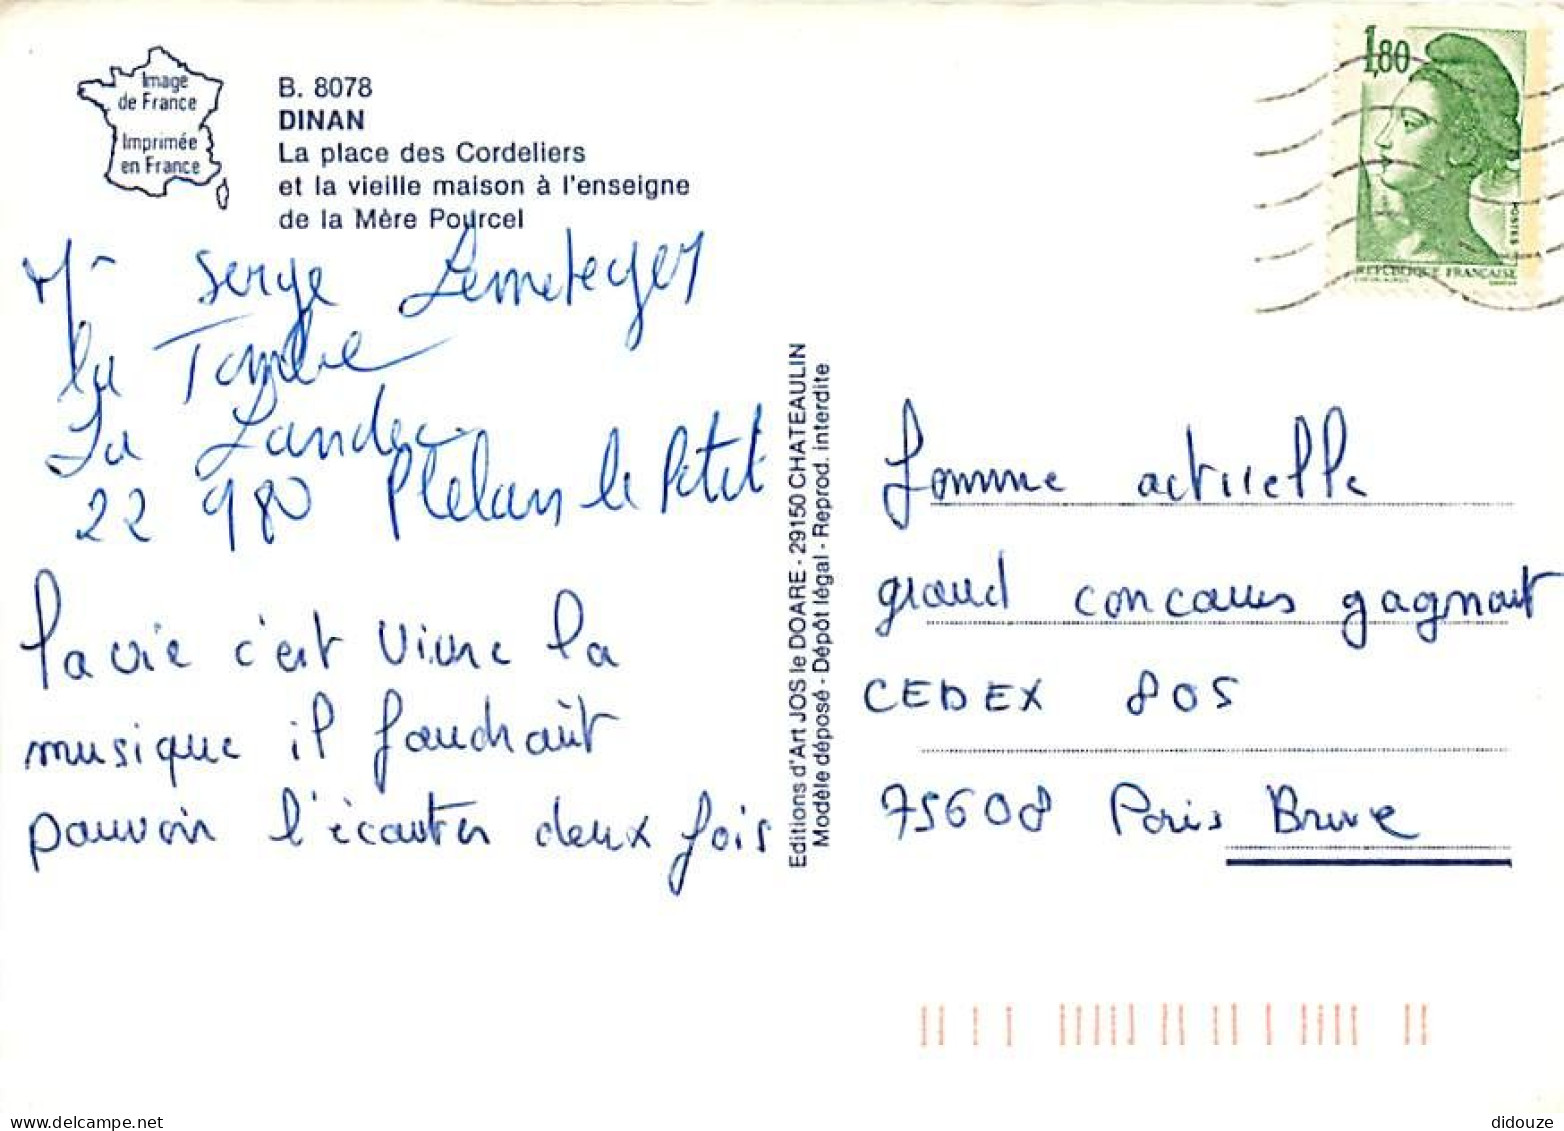 Image
de France
Imprimée
en France
B. 8078
DINAN
La place des Cordeliers
et la vieille maison à l'enseigne
de la Mère Pourcel
Mr Serge Lemeteyer
la
La Landec
22 980 Plelan le Petit
la vie c'est vivre la
musique il faudrait
pouvoir l'écouter deux fois
Editions d'Art JOS le DOARE - 29150 CHATEAULIN
Modèle déposé - Dépôt légal - Reprod. interdite
1,80
POSTES
REPUBLIQUE FRANÇAISE
femme actuelle
grand concours gagnant
CEDEX 805
75608 Paris Brune
didouze